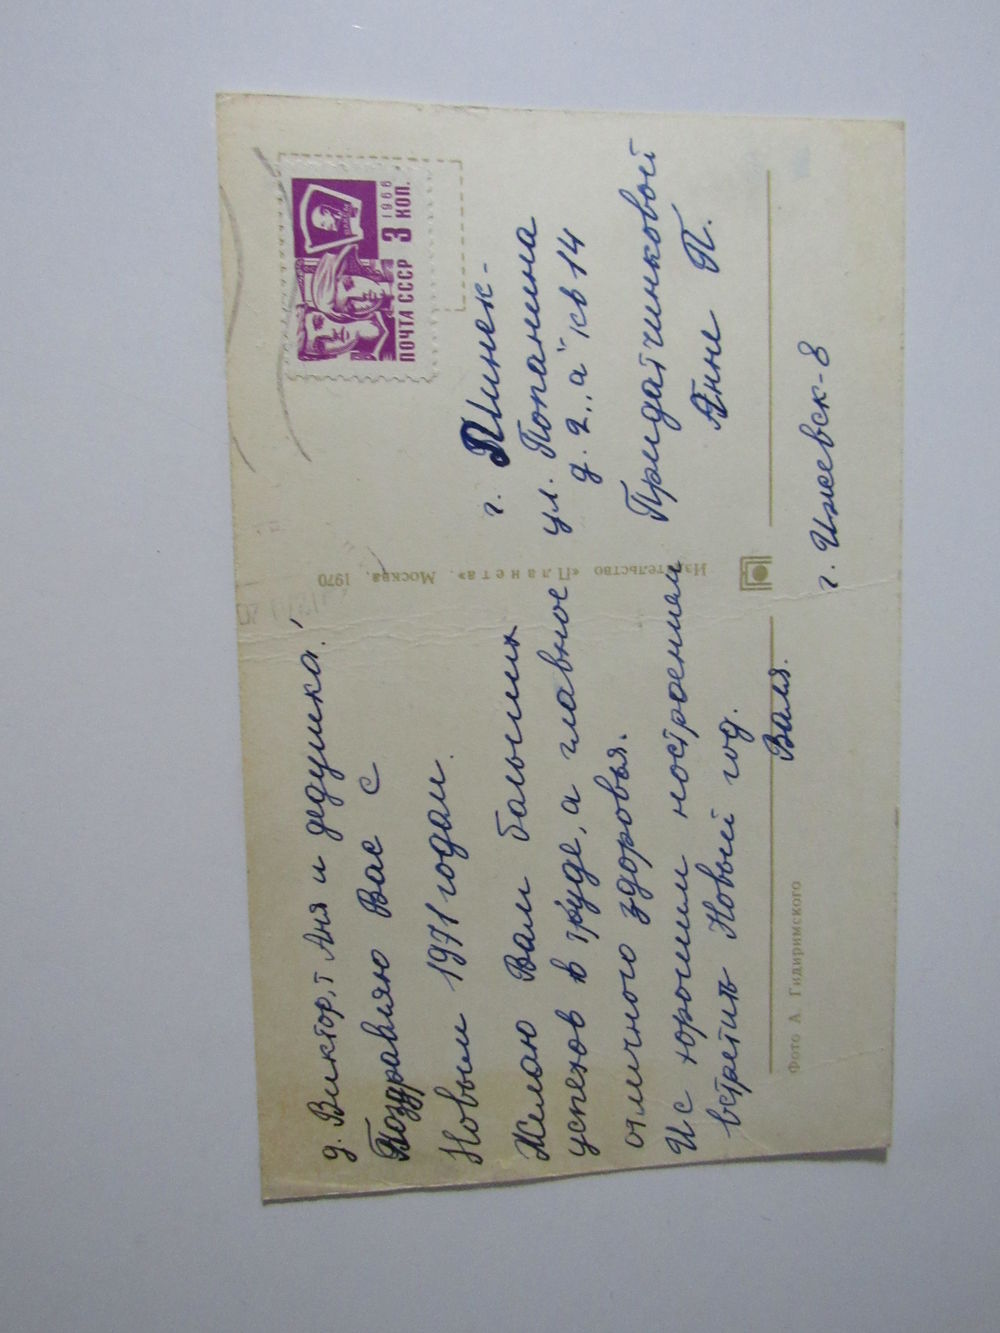 д. Виктор, т Аня и дедушка!
Поздравляю Вас с
Новым 1971 годом.
Желаю Вам больших
успехов в труде, а главное
отличного здоровья.
И с хорошим настроением
встретить Новый год.
Валя.
Фото А. Гидиримского
Издательство «Планета». Москва. 1970
ПОЧТА СССР 3 КОП.
1966
ВЛКСМ
г. Пинск-
ул. Попанина
д. 2 „а" кв 14
Придатчинковой
Анне П.
г. Ижевск-8